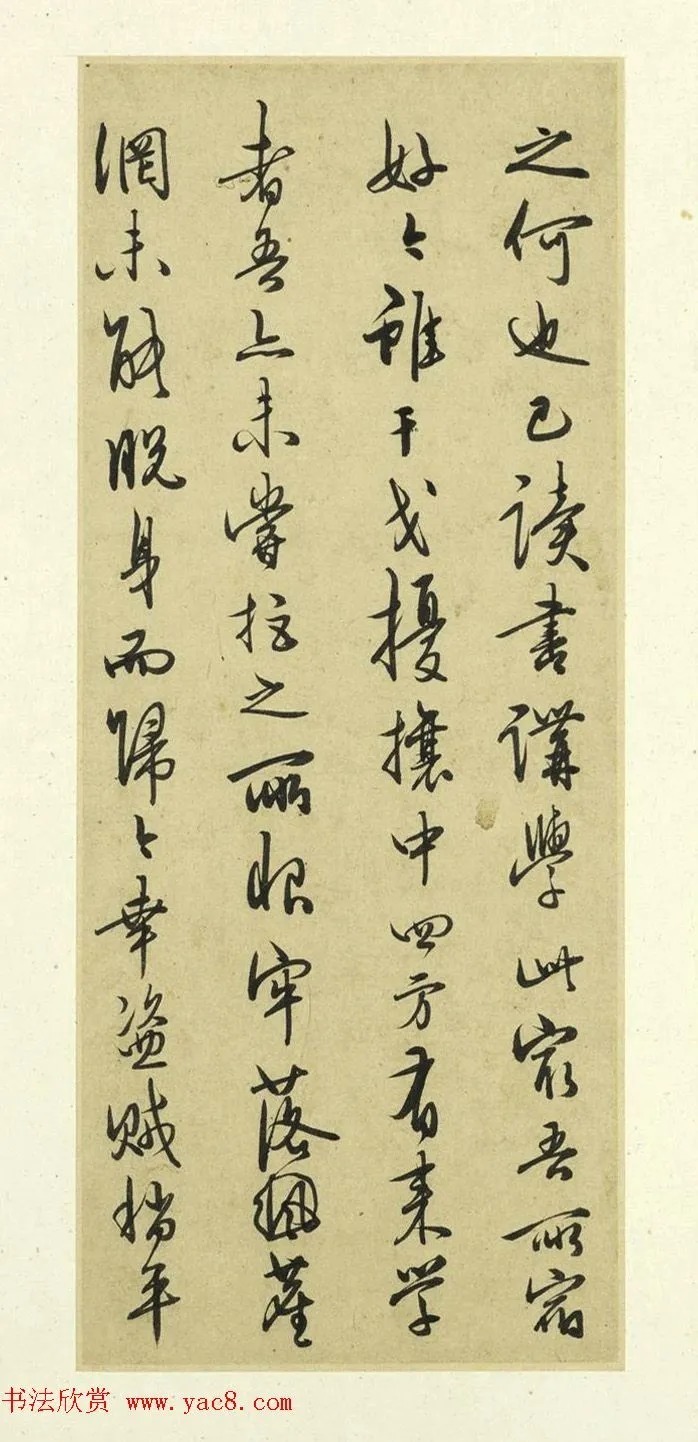 之何也已讀書講學此最吾所宿
好今雖干戈擾攘中四方有来学
者吾亦未嘗拒之所恨牢落塵
網未能脱身而歸今幸盗賊稍平
书法欣赏 www.yac8.com